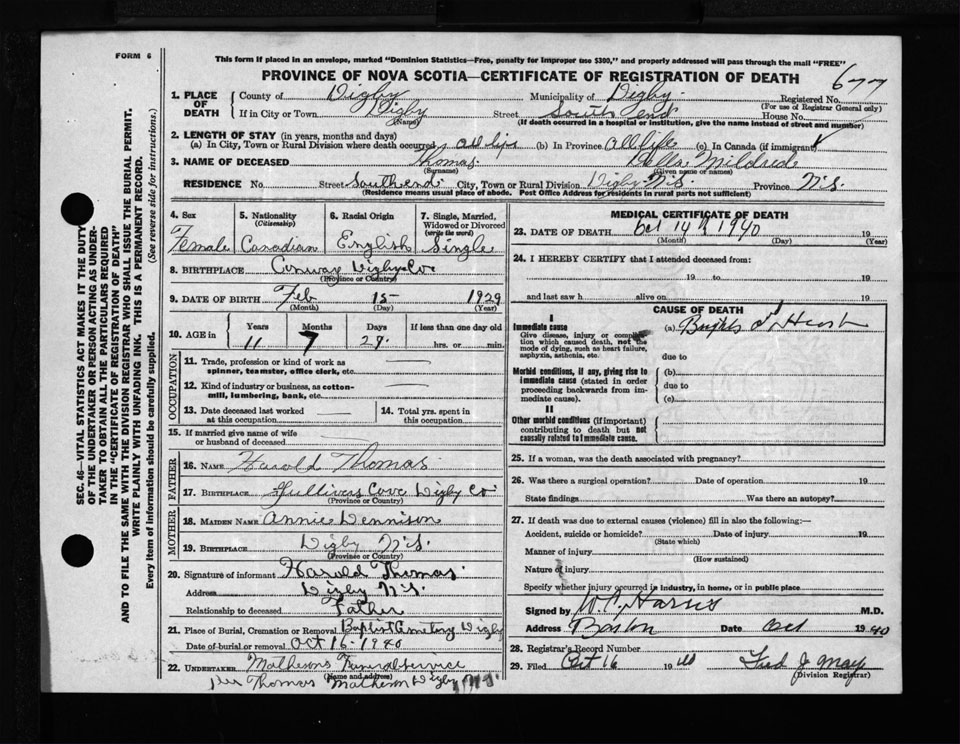 FORM 6
This form if placed in an envelope, marked "Dominion Statistics—Free, penalty for improper use $300," and properly addressed will pass through the mail "FREE"
PROVINCE OF NOVA SCOTIA—CERTIFICATE OF REGISTRATION OF DEATH
677
1. PLACE OF DEATH County of Digby Municipality of Digby Registered No.
(For use of Registrar General only)
If in City or Town Digby Street South End House No.
(Name) (If death occurred in a hospital or institution, give the name instead of street and number)
2. LENGTH OF STAY (in years, months and days)
(a) In City, Town or Rural Division where death occurred All life (b) In Province All life (c) In Canada (if immigrant)
3. NAME OF DECEASED Thomas Mildred
(Surname) (Given name or names)
RESIDENCE No. Street South end City, Town or Rural Division Digby N.S. Province N.S.
(Residence means usual place of abode. Post Office Address for residents in rural parts not sufficient)
4. Sex Female
5. Nationality (Citizenship) Canadian
6. Racial Origin English
7. Single, Married, Widowed or Divorced (write the word) Single
8. BIRTHPLACE Conway Digby Co
(Province or Country)
9. DATE OF BIRTH Feb 15 1929
(Month) (Day) (Year)
10. AGE in Years 11 Months 7 Days 29 If less than one day old hrs. or min.
OCCUPATION
11. Trade, profession or kind of work as spinner, teamster, office clerk, etc.
12. Kind of industry or business, as cotton-mill, lumbering, bank, etc.
13. Date deceased last worked at this occupation
14. Total yrs. spent in this occupation
15. If married give name of wife or husband of deceased
FATHER
16. NAME Harold Thomas
17. BIRTHPLACE Gullivers Cove Digby Co
(Province or Country)
MOTHER
18. MAIDEN NAME Annie Dennison
19. BIRTHPLACE Digby N.S.
(Province or Country)
20. Signature of informant Harold Thomas
Address Digby N.S.
Relationship to deceased Father
21. Place of Burial, Cremation or Removal Baptist Cemetery Digby
Date of burial or removal Oct 16 - 1940
22. UNDERTAKER Mathesons Funeral service
(Name and address)
Per Thomas Matheson Digby N.S.
MEDICAL CERTIFICATE OF DEATH
23. DATE OF DEATH Oct 14th 1940 19
(Month) (Day) (Year)
24. I HEREBY CERTIFY that I attended deceased from:
19 to 19
and last saw h alive on 19
CAUSE OF DEATH
I
Immediate cause (a) Brights & Heart
Give disease, injury or complication which caused death, not the mode of dying, such as heart failure, asphyxia, asthenia, etc.
due to
Morbid conditions, if any, giving rise to immediate cause (stated in order proceeding backwards from immediate cause).
(b)
due to
(c)
II
Other morbid conditions (if important) contributing to death but not causally related to immediate cause.
25. If a woman, was the death associated with pregnancy?
26. Was there a surgical operation? Date of operation 19
State findings Was there an autopsy?
27. If death was due to external causes (violence) fill in also the following:—
Accident, suicide or homicide? Date of injury 19
(State which)
Manner of injury
(How sustained)
Nature of injury
Specify whether injury occurred in industry, in home, or in public place
Signed by W. C. Harris M.D.
Address Date Oct 1940
28. Registrar's Record Number
29. Filed Oct 16 1940 Fred J. May
(Division Registrar)
SEC. 46—VITAL STATISTICS ACT MAKES IT THE DUTY
OF THE UNDERTAKER OR PERSON ACTING AS UNDER-
TAKER TO OBTAIN ALL THE PARTICULARS REQUIRED
IN THE "CERTIFICATE OF REGISTRATION OF DEATH"
AND TO FILE THE SAME WITH THE DIVISION REGISTRAR WHO SHALL ISSUE THE BURIAL PERMIT.
WRITE PLAINLY WITH UNFADING INK. THIS IS A PERMANENT RECORD.
Every item of information should be carefully supplied. (See reverse side for instructions.)